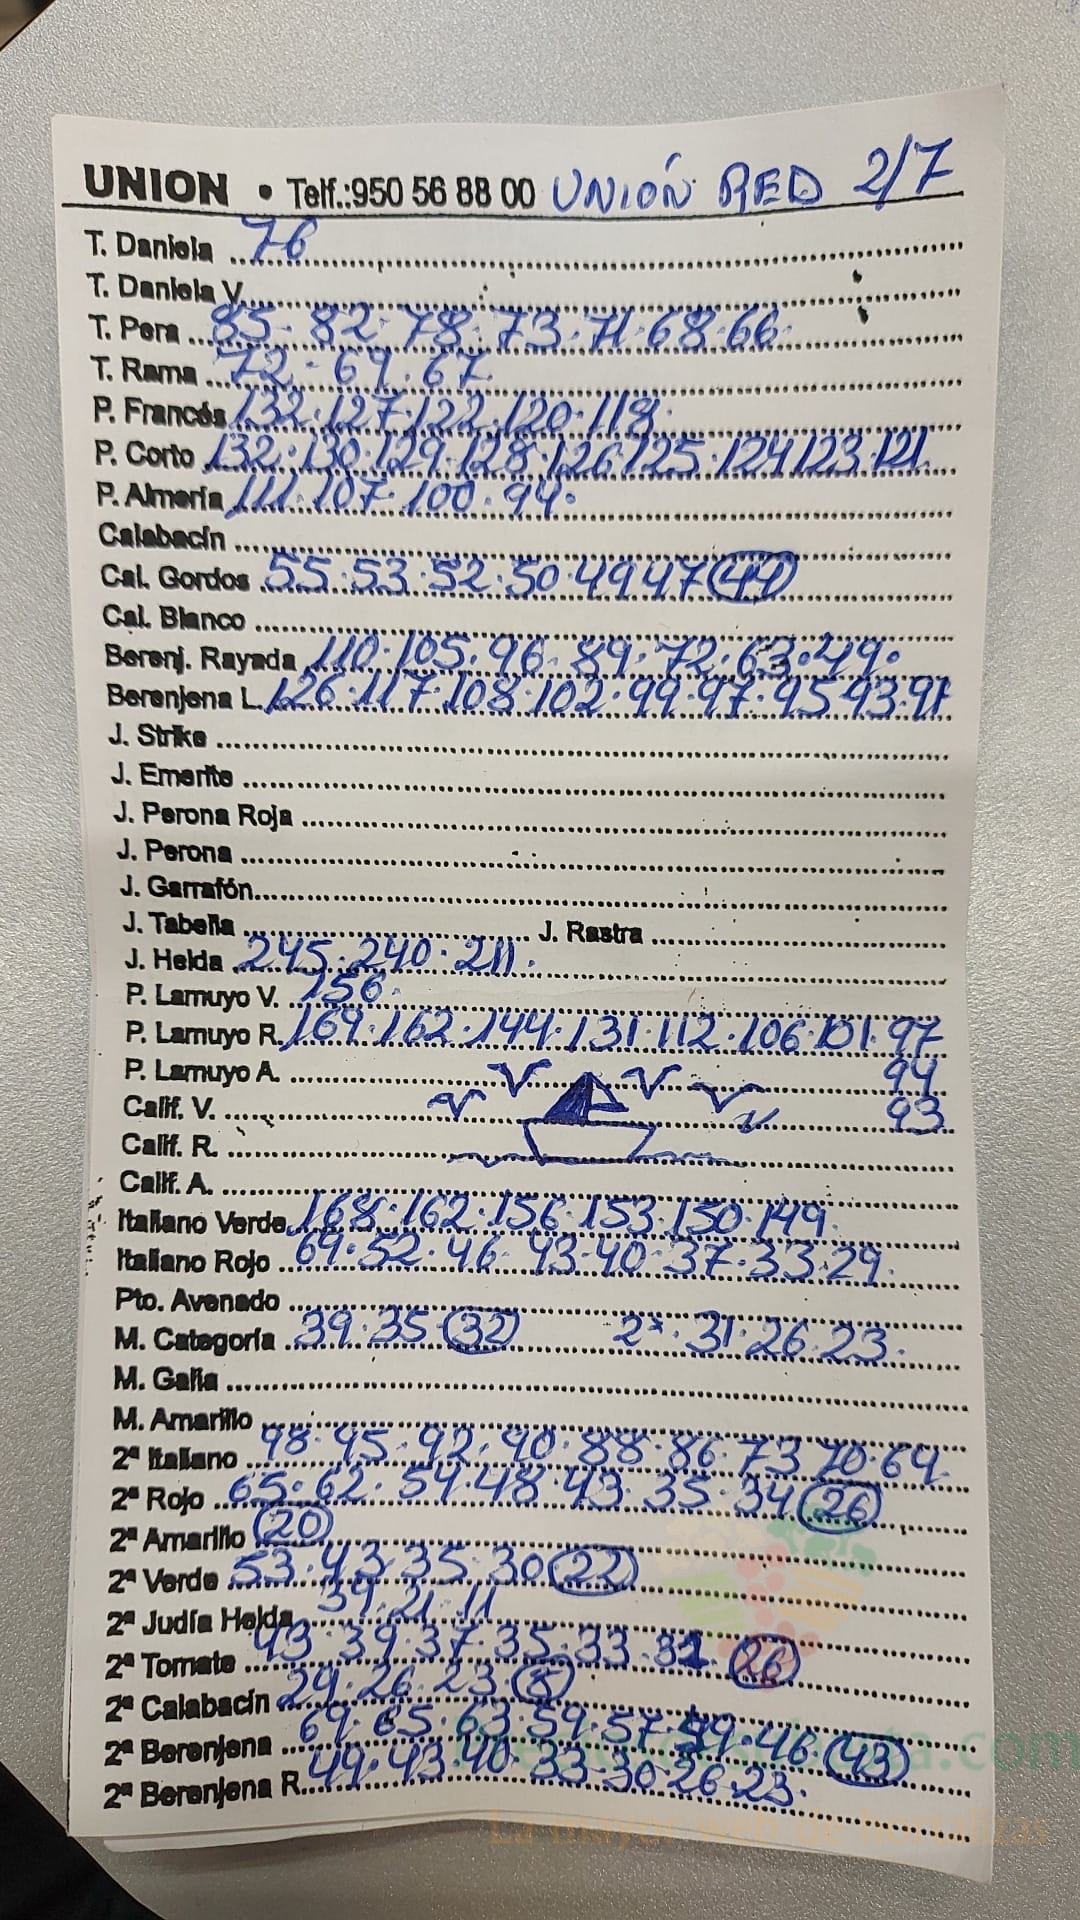 UNION • Telf.:950 56 88 00 UNIÓN RED 2/7
T. Daniela 76
T. Daniela V.
T. Pera 85·82·78·73·71·68·66·
T. Rama 72·69·67
P. Francés 132·127·122·120·118·
P. Corto 132·130·129·128·126·125·124 123·121
P. Almería 111·107·100·94·
Calabacín
Cal. Gordos 55·53·52·50·49 47 (44)
Cal. Blanco
Berenj. Rayada 110·105·96·89·72·63·49·
Berenjena L. 126·117·108·102·99·97·95 93·91
J. Strike
J. Emerite
J. Perona Roja
J. Perona
J. Garrafón
J. Tabella J. Rastra
J. Helda 245·240·211·
P. Lamuyo V. 156·
P. Lamuyo R. 169·162·144·131·112·106·101·97
P. Lamuyo A. 94
Calif. V. 93
Calif. R.
Calif. A.
Italiano Verde 168·162·156·153·150·149
Italiano Rojo 69·52·46·43·40·37·33·29·
Pto. Avenado
M. Categoría 39·35·(32) 2ª·31·26·23·
M. Galia
M. Amarillo
2ª Italiano 98·95·92·90·88·86·73 70·69
2ª Rojo 65·62·54·48·43·35·34 (26)
2ª Amarillo (20)
2ª Verde 53·43 35·30 (22)
2ª Judía Helda 39·21·11
2ª Tomate 43·39·37·35·33·32 (26)
2ª Calabacín 29·26·23 (8)
2ª Berenjena 69·65·63·59·57·49·46·(43)
2ª Berenjena R. 49·43 40·33·30·26·23·
La mayor web de hortalizas